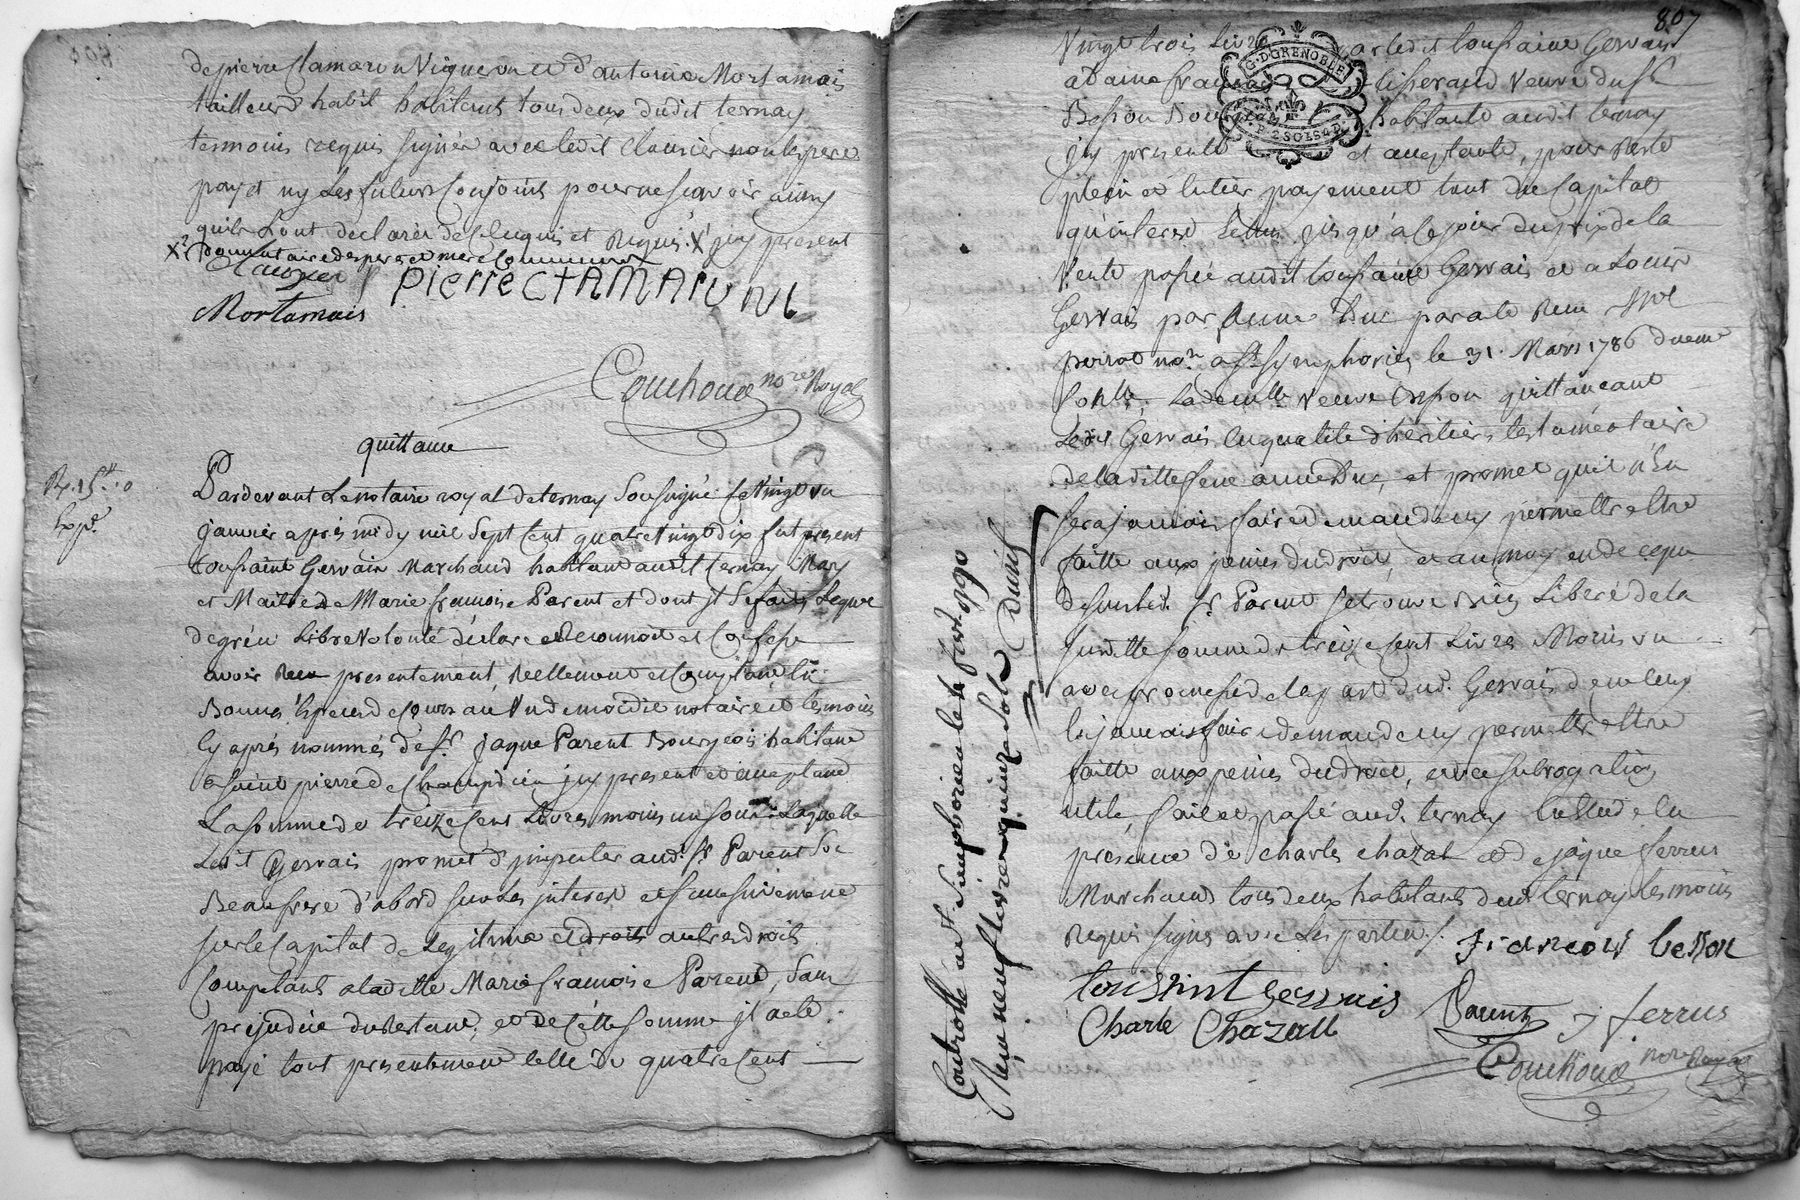 de pierre Clamaron Vigneron et d'antoine Mortamais
tailleur d'habit habitants tous deux dudit ternay
temoins requis signés avec ledit Clausier non le pere
payet ny Les futurs Conjoints pour ne scavoir ainsy
quils Lont declarés de Ce enquis et Requis. x1 jcy present
x2 Communes
Clausier
pierre CLAMARON
Mortamais
Couchoud nore Royal
quittance
Rx. 15 0
Expé
Pardevant Le notaire royal de ternay Soussigné Le Vingt un
janvier après midy mil Sept Cent quatre Vingt dix fut present
toussaint Gervais Marchand habitant audit ternay Mary
et Maitre de Marie francoise Parent et dont jl Se fait Lequel
de gré et Libre Volonté déclare et Reconnoit et Confesse
avoir Recu presentement, Reellement et Comptant En
Bonnes Especes de Cours au Vu de moidit notaire et temoins
Cy après nommés de Sr. jaque Parent Bourgeois habitant
a Saint pierre de Chandieu jcy present et acceptant
La somme de treize Cent Livres moins un Sou Laquelle
Ledit Gervais promet d'jmputer aud. Sr Parent Son
Beaufrere d'abord Sur Les jnterets et Successivement
Sur le Capital de Legitime et droits autres droits
Compétants a laditte Marie francoise Parent, Sans
prejudice du Restant, et de Cette Somme jl a été
payé tout presentement Celle de quatre Cent
807
G. D GRENOBLE
P. 2 SOLS 4 D.
Vingt trois Livres par ledit toussaint Gervais
a Daine francoise tisserand Veuve du Sr.
Besson Bourgeois habitante audit ternay
jcy presente et acceptante, pour Reste
plein et Entier payement tant du Capital
qu'interets Echus jusqu'à Ce jour du prix de la
Vente passée audit toussaint Gervais et a Louis
Gervais par Anne Duc pardt Reçu Me
perrot nore. a St. Symphorien le 31. Mars 1786 duement
Contllé. Laditte Veuve Besson quittancant
Ledit Gervais En qualité d'heritier testamentaire
de laditte feue anne Duc, et promet qu'il n'En
Sera jamais faire demande ny permettre Etre
faitte aux peines du droit, et au moyen de Ce que
dessus led. Sr. Parent Se trouve Bien Liberé de la
Susditte Somme de treize Cent Livres Moins un
avec promesse de la part dud. Gervais de ne Leur
En jamais faire demande ny permettre Etre
faitte aux peines du droit, avec Subrogation
utile, fait et passé aud. ternay En Etude En
presence de Charles Chazal et de jaque ferrus
Marchands tous deux habitants dud. ternay temoins
Requis Signés avec Les parties.
francois besson
toussaint Gervais
Parent
J ferrus
Charle Chazall
Couchoud nore Royal
Controllé à St. Simphorien le 4 fevr. 1790
Reçu neuf livres quinze sols